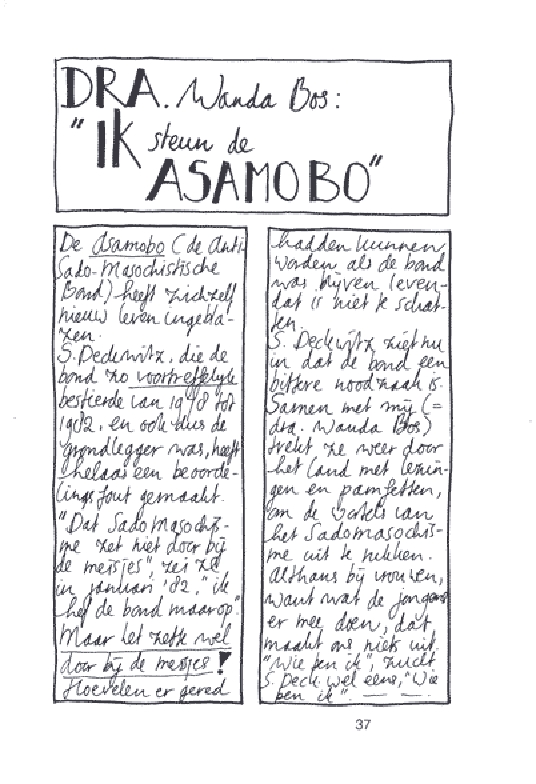 DRA. Wanda Bos:
"IK steun de
ASAMOBO"
De Asamobo (de Anti-
Sado-Masochistische
Bond) heeft zichzelf
nieuw leven ingebla-
zen.
S. Deckwitz, die de
bond zo voortreffelijk
bestierde van 1978 tot
1982, en ook dus de
grondlegger was, heeft
helaas een beoorde-
lings fout gemaakt.
"Dat Sadomasochis-
me zet niet door bij
de meisjes", zei ze
in januari '82, "ik
hef de bond maar op".
Maar het zette wel
door bij de meisjes!
Hoevelen er gered
hadden kunnen
worden als de bond
was blijven leven-
dat is niet te schat-
ten.
S. Deckwitz ziet nu
in dat de bond een
bittere noodzaak is.
Samen met mij (=
dra. Wanda Bos)
trekt ze weer door
het land met lezin-
gen en pamfletten,
om de wortels van
het Sadomasochis-
me uit te rukken.
Althans bij vrouwen,
want wat de jongens
er mee doen, dat
maakt ons niets uit.
"Wie ben ik", zucht
S. Deck wel eens, "Wie
ben ik".
37